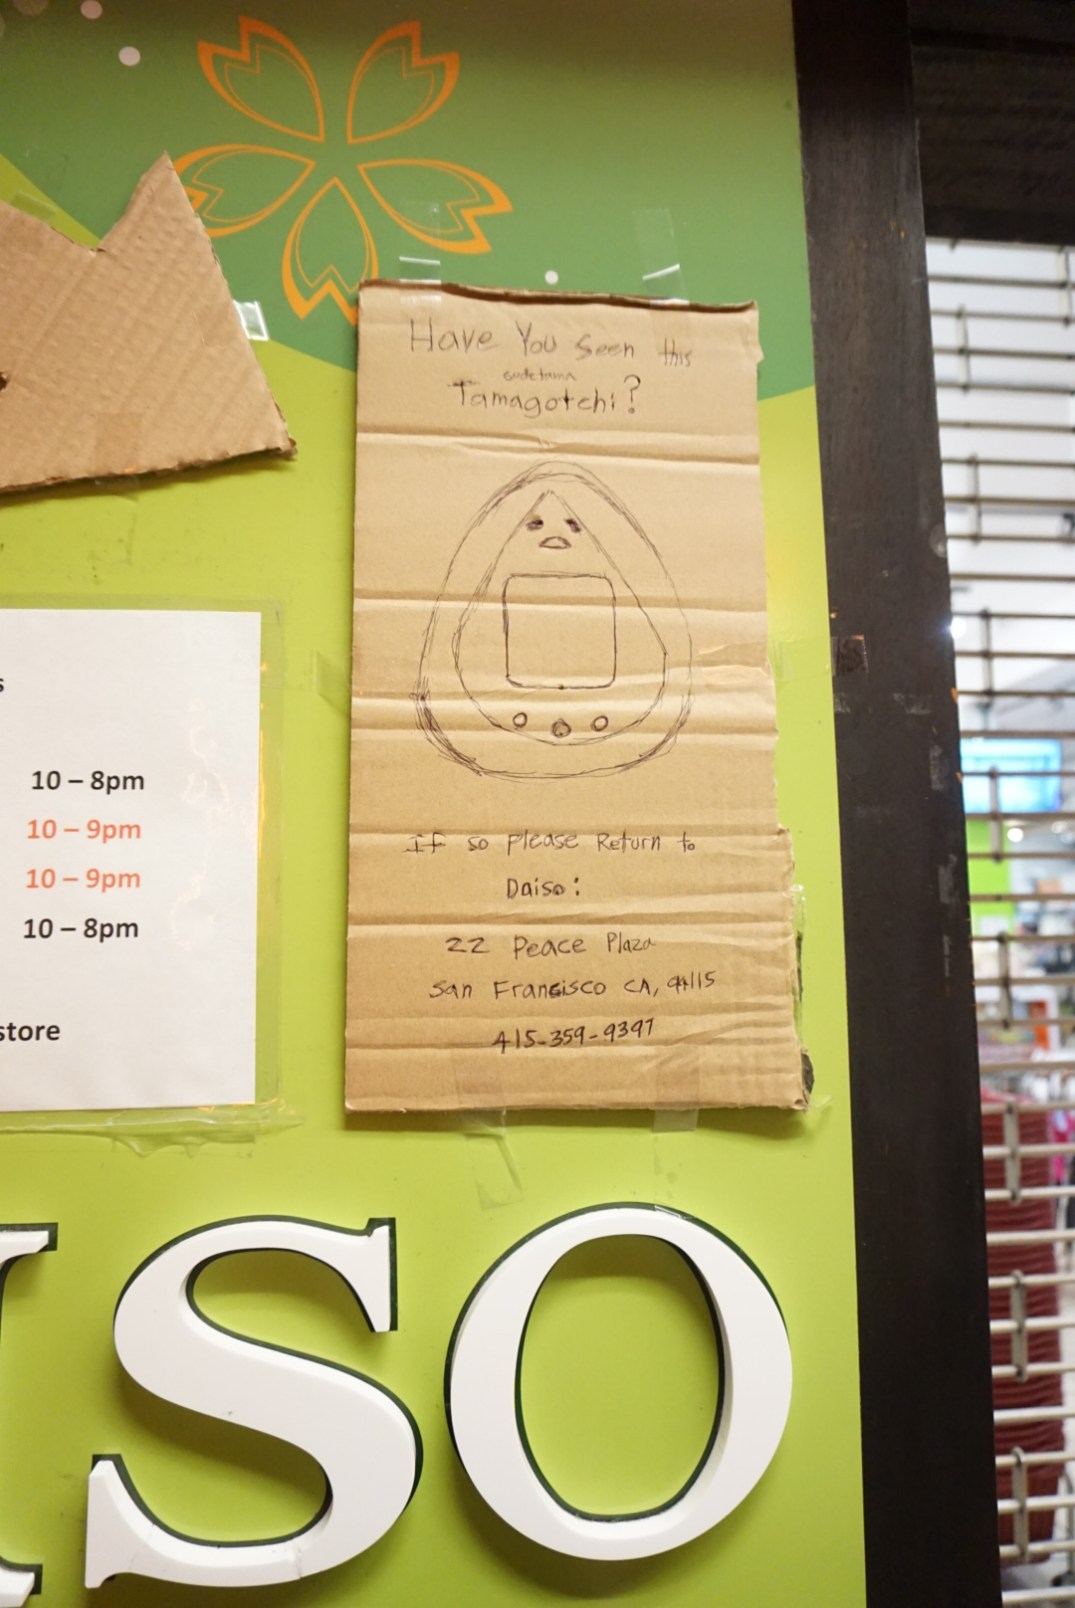 Have You Seen this
gudetama
Tamagotchi?
If so please Return to
Daiso:
22 Peace Plaza
San Francisco CA, 94115
415-359-9397
s
10 – 8pm
10 – 9pm
10 – 9pm
10 – 8pm
store
ISO